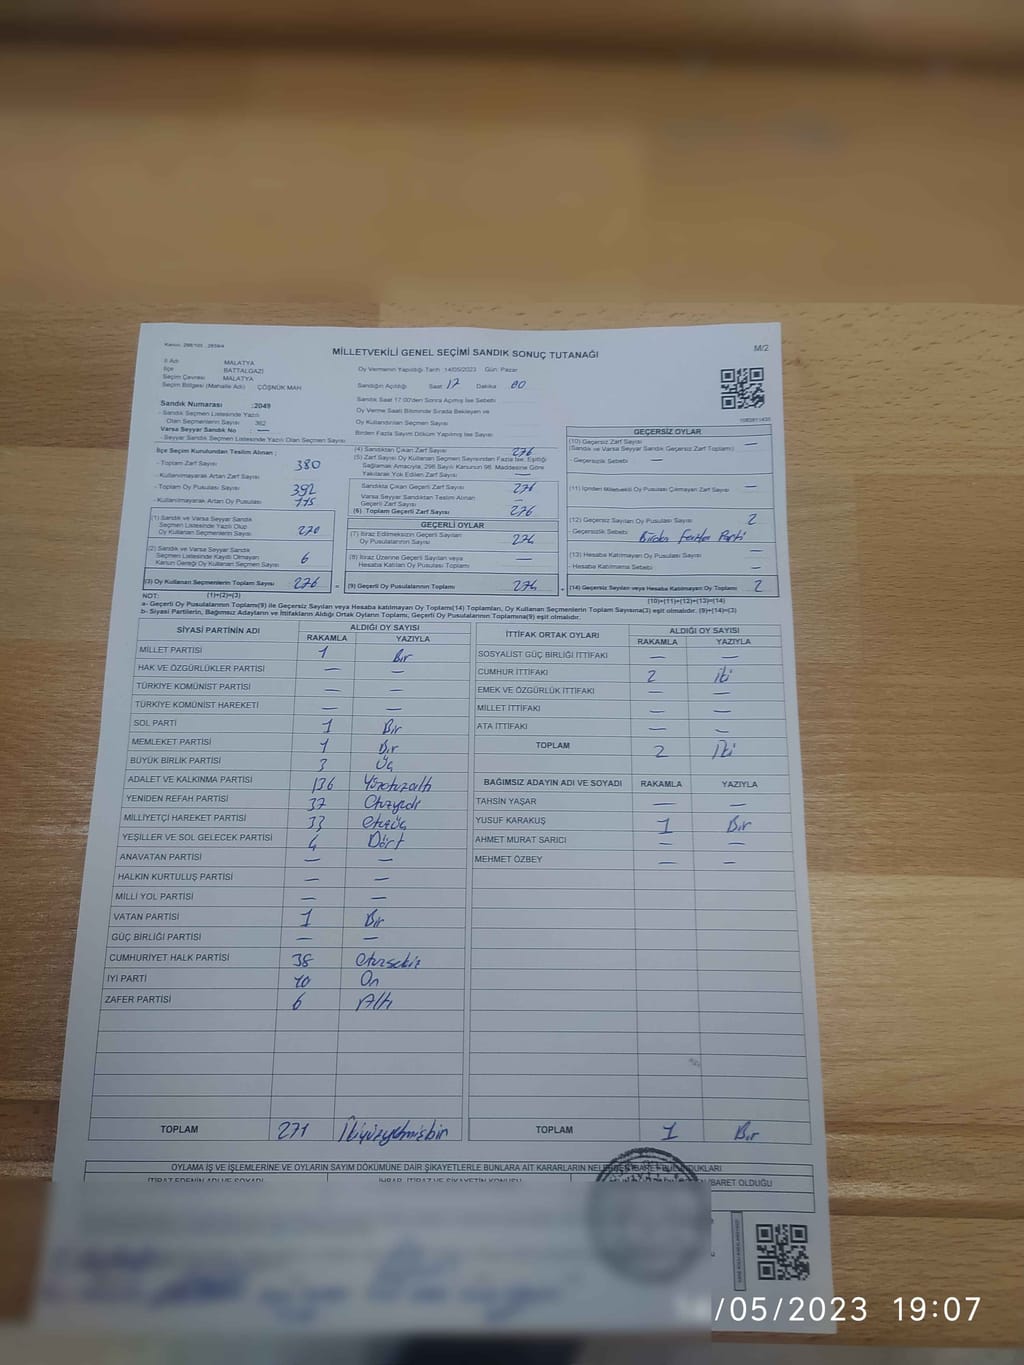 Kanun: 298/105 , 2839/4
M/2
MİLLETVEKİLİ GENEL SEÇİMİ SANDIK SONUÇ TUTANAĞI
İl Adı MALATYA
İlçe BATTALGAZİ
Seçim Çevresi MALATYA
Seçim Bölgesi (Mahalle Adı) ÇÖŞNÜK MAH
Oy Vermenin Yapıldığı Tarih :14/05/2023 Gün: Pazar
Sandığın Açıldığı Saat 17 Dakika 00
Sandık Saat 17:00'den Sonra Açılmış İse Sebebi
Oy Verme Saati Bitiminde Sırada Bekleyen ve
Oy Kullandırılan Seçmen Sayısı
Birden Fazla Sayım Döküm Yapılmış İse Sayısı
Sandık Numarası :2049
- Sandık Seçmen Listesinde Yazılı
Olan Seçmenlerin Sayısı 362
Varsa Seyyar Sandık No : —
- Seyyar Sandık Seçmen Listesinde Yazılı Olan Seçmen Sayısı
İlçe Seçim Kurulundan Teslim Alınan ;
- Toplam Zarf Sayısı 380
- Kullanılmayarak Artan Zarf Sayısı
- Toplam Oy Pusulası Sayısı 392
- Kullanılmayarak Artan Oy Pusulası 115
(1) Sandık ve Varsa Seyyar Sandık
Seçmen Listesinde Yazılı Olup
Oy Kullanan Seçmenlerin Sayısı 270
(2) Sandık ve Varsa Seyyar Sandık
Seçmen Listesinde Kaydı Olmayan
Kanun Gereği Oy Kullanan Seçmen Sayısı 6
(3) Oy Kullanan Seçmenlerin Toplam Sayısı 276
(1)+(2)=(3)
(4) Sandıktan Çıkan Zarf Sayısı 276
(5) Zarf Sayısı Oy Kullanan Seçmen Sayısından Fazla İse, Eşitliği
Sağlamak Amacıyla, 298 Sayılı Kanunun 98. Maddesine Göre
Yakılarak Yok Edilen Zarf Sayısı —
Sandıkta Çıkan Geçerli Zarf Sayısı 276
Varsa Seyyar Sandıktan Teslim Alınan
Geçerli Zarf Sayısı —
(6) Toplam Geçerli Zarf Sayısı 276
GEÇERLİ OYLAR
(7) İtiraz Edilmeksizin Geçerli Sayılan
Oy Pusulalarının Sayısı 274
(8) İtiraz Üzerine Geçerli Sayılan veya
Hesaba Katılan Oy Pusulası Toplamı —
(9) Geçerli Oy Pusulalarının Toplamı 274
GEÇERSİZ OYLAR
(10) Geçersiz Zarf Sayısı —
(Sandık ve Varsa Seyyar Sandık Geçersiz Zarf Toplamı)
- Geçersizlik Sebebi —
(11) İçinden Milletvekili Oy Pusulası Çıkmayan Zarf Sayısı —
(12) Geçersiz Sayılan Oy Pusulası Sayısı 2
- Geçersizlik Sebebi Birden Fazla Parti
(13) Hesaba Katılmayan Oy Pusulası Sayısı —
- Hesaba Katılmama Sebebi —
(14) Geçersiz Sayılan veya Hesaba Katılmayan Oy Toplamı 2
(10)+(11)+(12)+(13)=(14)
NOT:
a- Geçerli Oy Pusulalarının Toplamı(9) ile Geçersiz Sayılan veya Hesaba katılmayan Oy Toplamı(14) Toplamları, Oy Kullanan Seçmenlerin Toplam Sayısına(3) eşit olmalıdır. (9)+(14)=(3)
b- Siyasi Partilerin, Bağımsız Adayların ve İttifakların Aldığı Ortak Oyların Toplamı; Geçerli Oy Pusulalarının Toplamına(9) eşit olmalıdır.
SİYASİ PARTİNİN ADI ALDIĞI OY SAYISI
RAKAMLA YAZIYLA
MİLLET PARTİSİ 1 Bir
HAK VE ÖZGÜRLÜKLER PARTİSİ — —
TÜRKİYE KOMÜNİST PARTİSİ — —
TÜRKİYE KOMÜNİST HAREKETİ — —
SOL PARTİ 1 Bir
MEMLEKET PARTİSİ 1 Bir
BÜYÜK BİRLİK PARTİSİ 3 Üç
ADALET VE KALKINMA PARTİSİ 136 Yüzotuzaltı
YENİDEN REFAH PARTİSİ 37 Otuzyedi
MİLLİYETÇİ HAREKET PARTİSİ 33 Otuzüç
YEŞİLLER VE SOL GELECEK PARTİSİ 4 Dört
ANAVATAN PARTİSİ — —
HALKIN KURTULUŞ PARTİSİ — —
MİLLİ YOL PARTİSİ — —
VATAN PARTİSİ 1 Bir
GÜÇ BİRLİĞİ PARTİSİ — —
CUMHURİYET HALK PARTİSİ 38 Otuzsekiz
İYİ PARTİ 10 On
ZAFER PARTİSİ 6 Altı
TOPLAM 271 İkiyüzyetmişbir
İTTİFAK ORTAK OYLARI ALDIĞI OY SAYISI
RAKAMLA YAZIYLA
SOSYALİST GÜÇ BİRLİĞİ İTTİFAKI — —
CUMHUR İTTİFAKI 2 iki
EMEK VE ÖZGÜRLÜK İTTİFAKI — —
MİLLET İTTİFAKI — —
ATA İTTİFAKI — —
TOPLAM 2 İki
BAĞIMSIZ ADAYIN ADI VE SOYADI RAKAMLA YAZIYLA
TAHSİN YAŞAR — —
YUSUF KARAKUŞ 1 Bir
AHMET MURAT SARICI — —
MEHMET ÖZBEY — —
TOPLAM 1 Bir
OYLAMA İŞ VE İŞLEMLERİNE VE OYLARIN SAYIM DÖKÜMÜNE DAİR ŞİKAYETLERLE BUNLARA AİT KARARLARIN NELERDEN İBARET BULUNDUKLARI
İTİRAZ EDENİN ADI VE SOYADI İHBAR, İTİRAZ VE ŞİKAYETİN KONUSU İBARET OLDUĞU
/05/2023 19:07